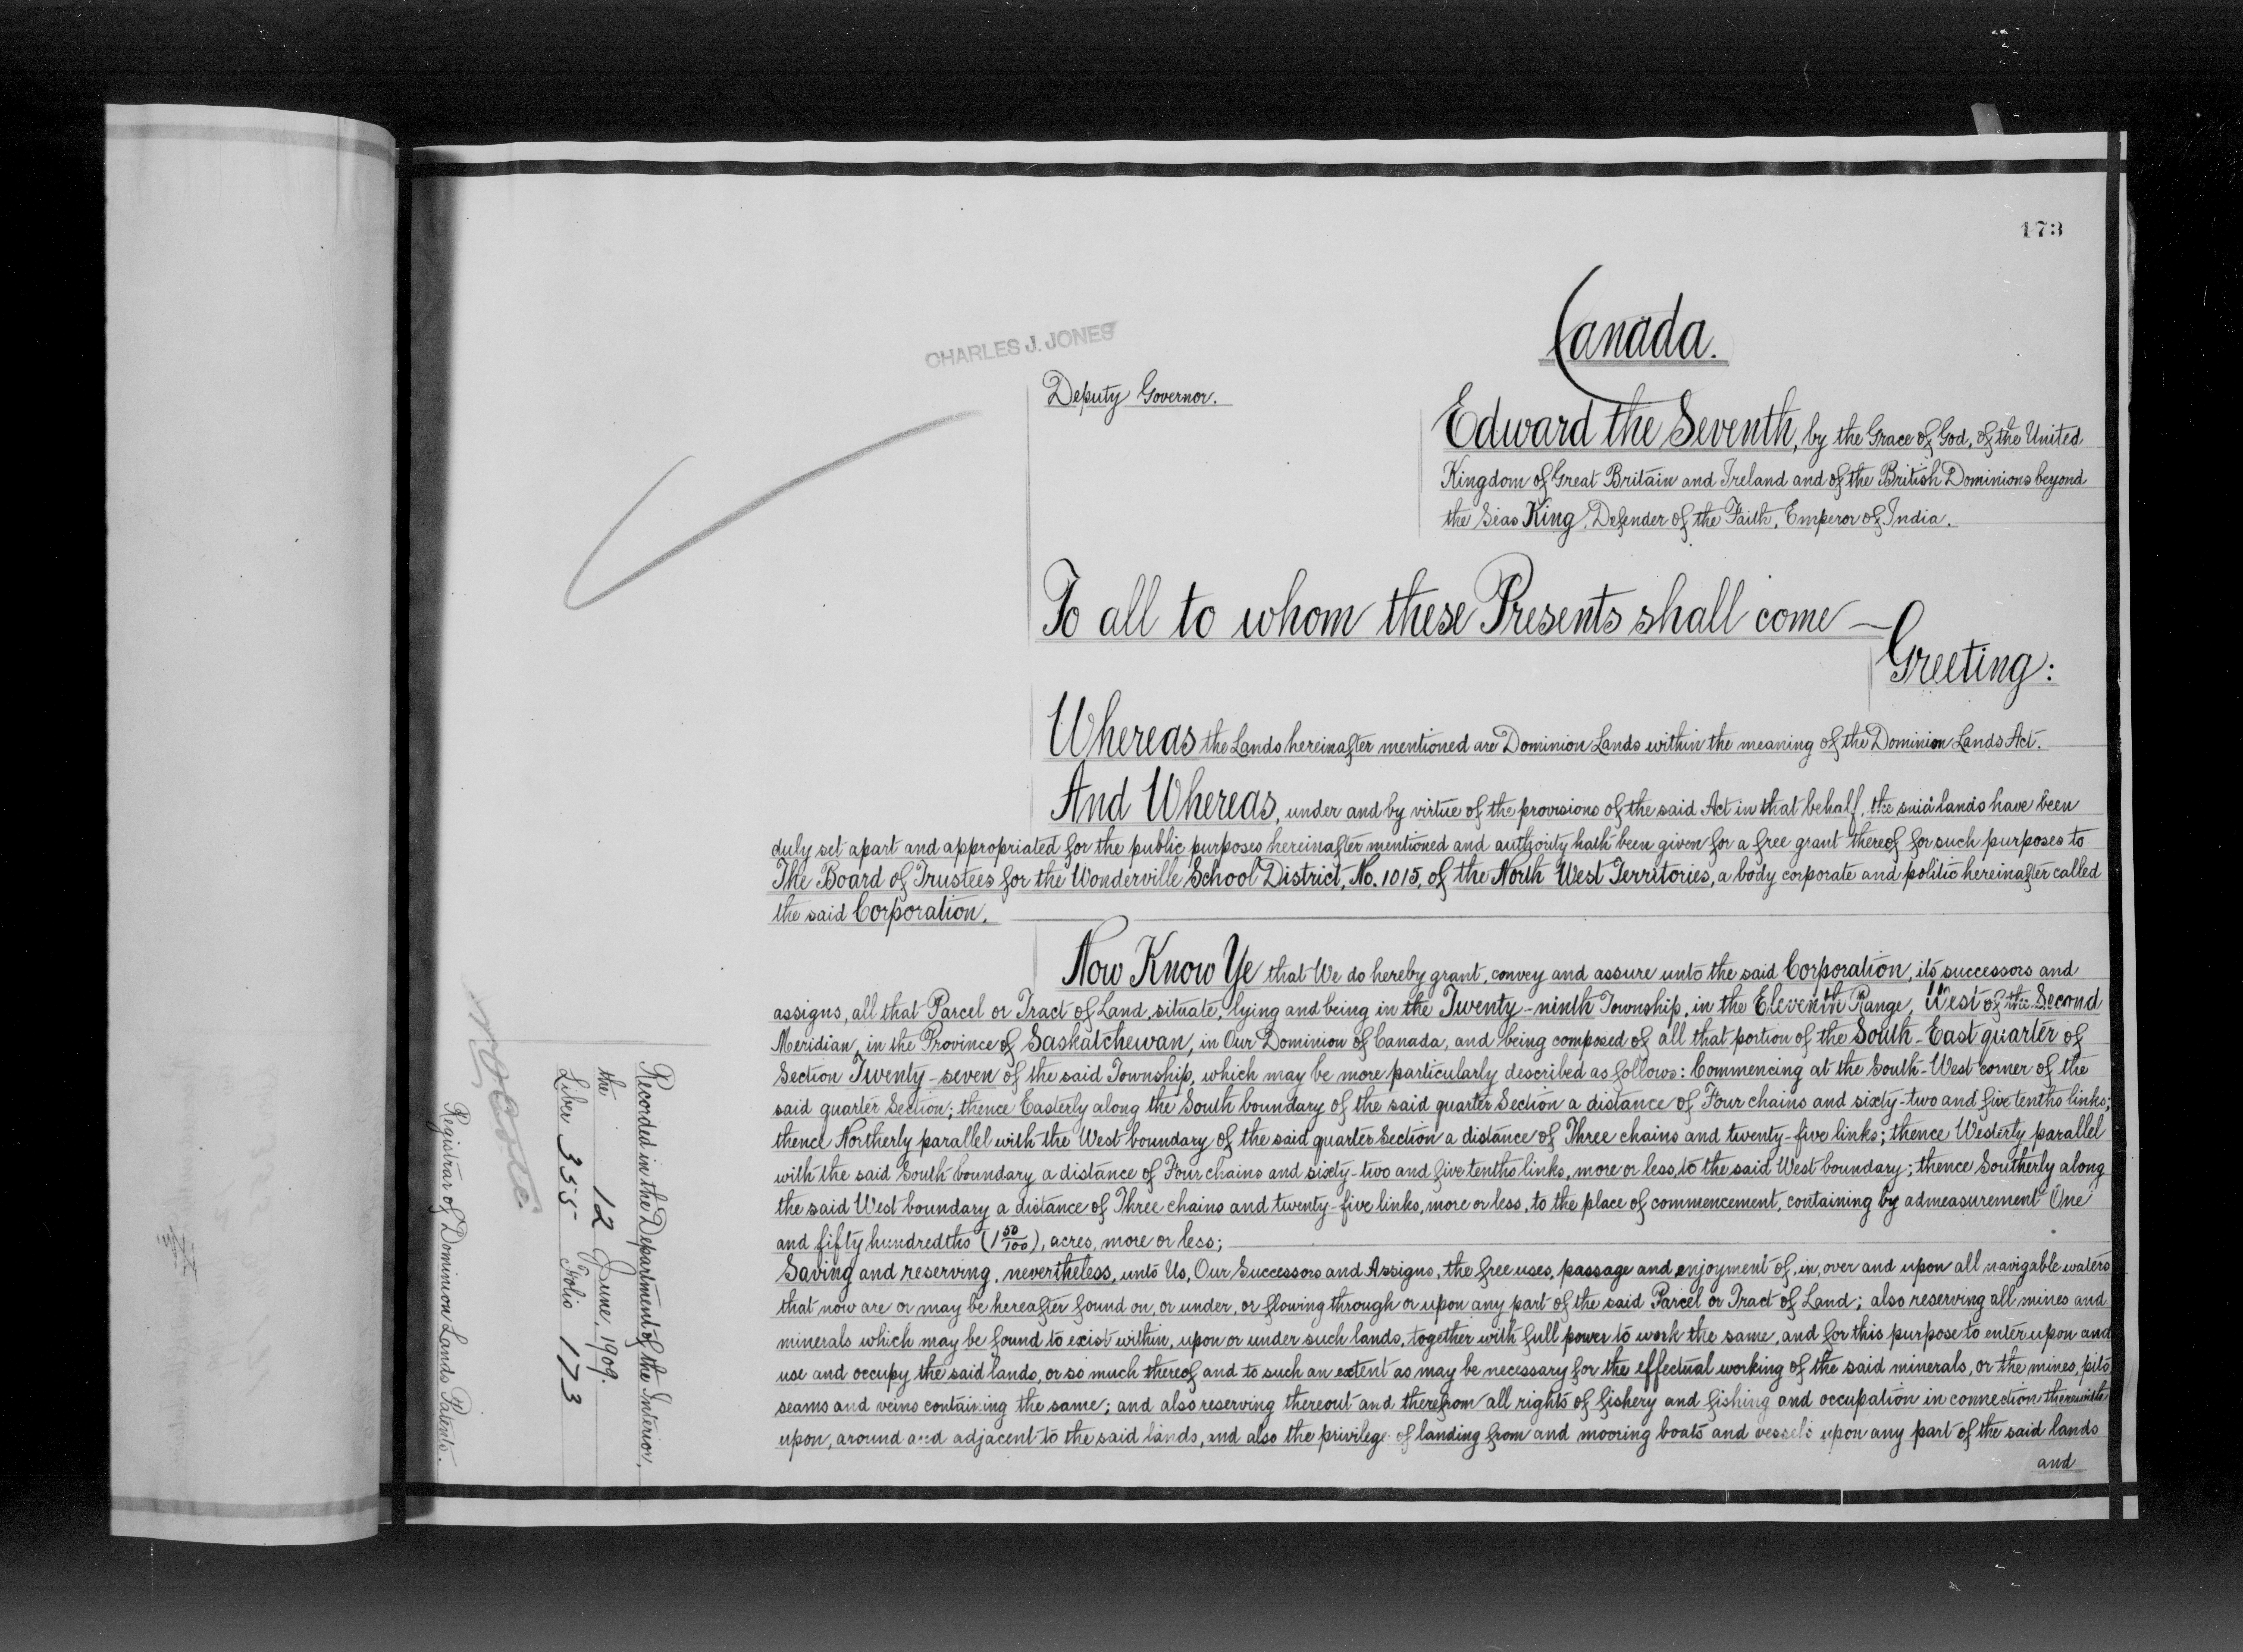 173
Canada.
CHARLES J. JONES
Deputy Governor.
Edward the Seventh, by the Grace of God, of the United
Kingdom of Great Britain and Ireland and of the British Dominions beyond
the Seas King, Defender of the Faith, Emperor of India.
To all to whom these Presents shall come —
Greeting:
Whereas the Lands hereinafter mentioned are Dominion Lands within the meaning of the Dominion Lands Act.
And Whereas, under and by virtue of the provisions of the said Act in that behalf, the said lands have been
duly set apart and appropriated for the public purposes hereinafter mentioned and authority hath been given for a free grant thereof for such purposes to
The Board of Trustees for the Wonderville School District, No. 1015, of the North West Territories, a body corporate and politic hereinafter called
the said Corporation.
Now Know Ye that We do hereby grant, convey and assure unto the said Corporation, its successors and
assigns, all that Parcel or Tract of Land, situate, lying and being in the Twenty-ninth Township, in the Eleventh Range, West of the Second
Meridian, in the Province of Saskatchewan, in Our Dominion of Canada, and being composed of all that portion of the South-East quarter of
Section Twenty-seven of the said Township, which may be more particularly described as follows: Commencing at the South-West corner of the
said quarter Section; thence Easterly along the South boundary of the said quarter Section a distance of Four chains and sixty-two and five tenths links;
thence Northerly parallel with the West boundary of the said quarter Section a distance of Three chains and twenty-five links; thence Westerly parallel
with the said South boundary a distance of Four chains and sixty-two and five tenths links, more or less, to the said West boundary; thence Southerly along
the said West boundary a distance of Three chains and twenty-five links, more or less, to the place of commencement, containing by admeasurement One
and fifty hundredths (1 50/100), acres, more or less;
Saving and reserving, nevertheless, unto Us, Our Successors and Assigns, the free uses, passage and enjoyment of, in, over and upon all navigable waters
that now are or may be hereafter found on, or under, or flowing through or upon any part of the said Parcel or Tract of Land; also reserving all mines and
minerals which may be found to exist within, upon or under such lands, together with full power to work the same, and for this purpose to enter upon and
use and occupy the said lands, or so much thereof and to such an extent as may be necessary for the effectual working of the said minerals, or the mines, pits
seams and veins containing the same; and also reserving thereout and therefrom all rights of fishery and fishing and occupation in connection therewith
upon, around and adjacent to the said lands, and also the privilege of landing from and mooring boats and vessels upon any part of the said lands
and
Recorded in the Department of the Interior,
the 12 June, 1909.
Liber 355 Folio 173
Registrar of Dominion Lands Patents.